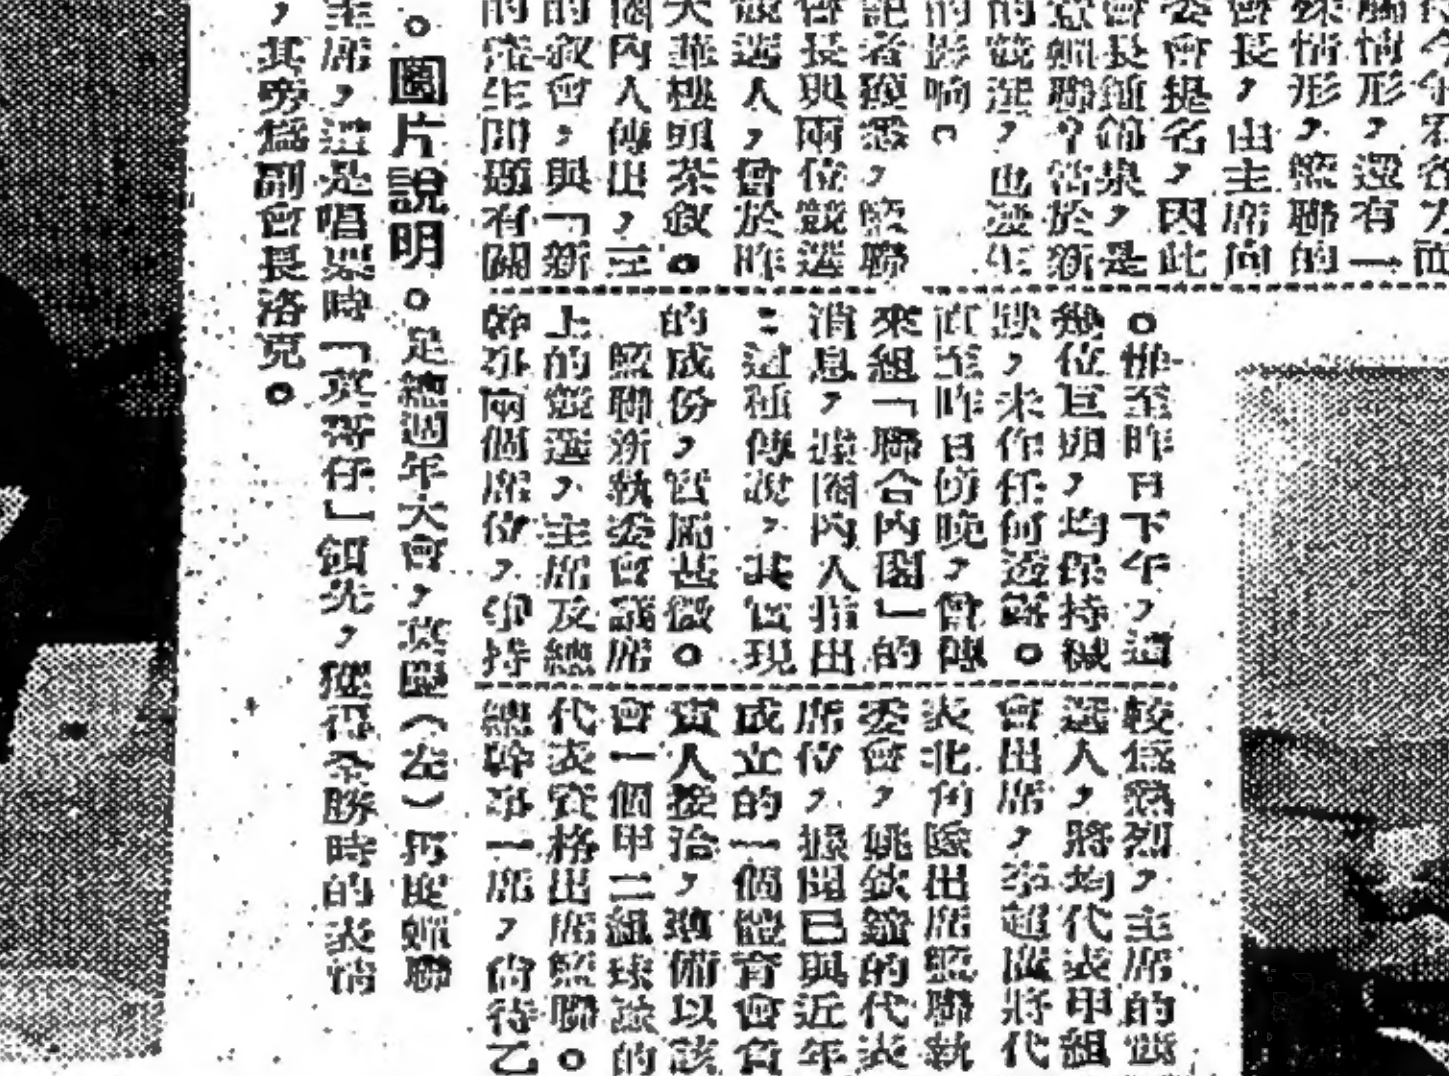 今年 容方面
觸情形，還有一
殊情形，照聯的
會長，由主席向
委會提名，因此
會長鍾錦泉，是
意蟬聯？當於新
的競選，也發生
的影响。
記者獲悉，照聯
會長與兩位競選
競選人，曾於昨
大華樓頭茶敘。
閣內人傳出，三
的敘會，與「新
的產生問題有關
。惟至昨日下午，這
幾位巨頭，均保持緘
默，未作任何透露。
直至昨日傍晚，曾傳
來組「聯合內閣」的
消息，據閣內人指出
：這種傳說，其實現
的成份，實屬甚微。
照聯新執委會議席
上的競選，主席及總
幹事兩個席位，爭持
較為熱烈，主席的競
選人，將均代表甲組
會出席，李超 將代
表北角隊出席照聯執
委會，姚欽鐘的代表
席位，據聞已與近年
成立的一個體育會負
責人接洽，準備以該
會一個甲二組球隊的
代表資格出席照聯。
總幹事一席，尚待乙
。圖片說明。足總週年大會， （左）再度蟬聯
主席，這是唱票時「英哥仔」領先，獲得全勝時的表情
，其旁為副會長洛克。